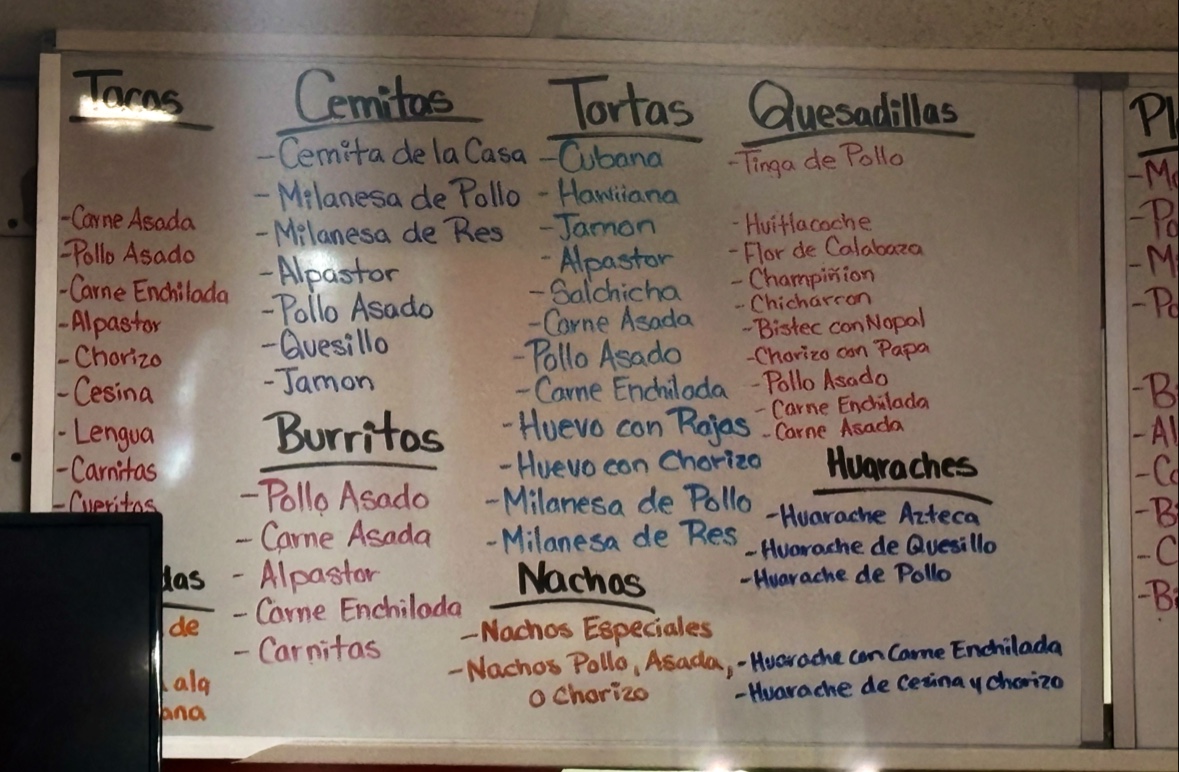 Tacos
-Carne Asada
-Pollo Asado
-Carne Enchilada
-Alpastor
-Chorizo
-Cesina
-Lengua
-Carnitas
-Cueritos
das
de
ala
ana
Cemitas
-Cemita de la Casa
-Milanesa de Pollo
-Milanesa de Res
-Alpastor
-Pollo Asado
-Quesillo
-Jamon
Burritos
-Pollo Asado
-Carne Asada
-Alpastor
-Carne Enchilada
-Carnitas
Tortas
-Cubana
-Hawiiana
-Jamon
-Alpastor
-Salchicha
-Carne Asada
-Pollo Asado
-Carne Enchilada
-Huevo con Rajas
-Huevo con Chorizo
-Milanesa de Pollo
-Milanesa de Res
Nachos
-Nachos Especiales
-Nachos Pollo, Asada,
o Chorizo
Quesadillas
-Tinga de Pollo
-Huitlacoche
-Flor de Calabaza
-Champiñion
-Chicharron
-Bistec con Nopal
-Chorizo con Papa
-Pollo Asado
-Carne Enchilada
-Carne Asada
Huaraches
-Huarache Azteca
-Huarache de Quesillo
-Huarache de Pollo
-Huarache con Carne Enchilada
-Huarache de Cesina y chorizo
Pl
-M
-Po
-M
-Po
-B
-Al
-C
-B
-C
-B